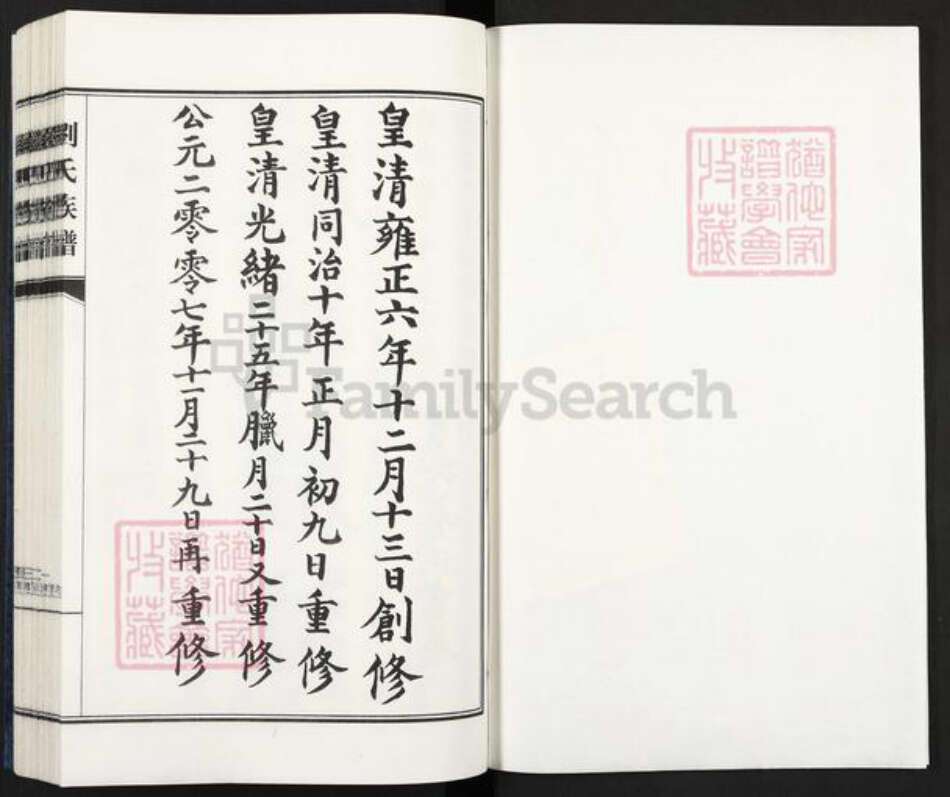 皇清雍正六年十二月十三日創修
皇清同治十年正月初九日重修
皇清光緒二十五年臘月二十日又重修
公元二零零七年十一月二十九日再重修
劉氏族譜
猶他家
譜學會
收藏
猶他家
譜學會
收藏
FamilySearch